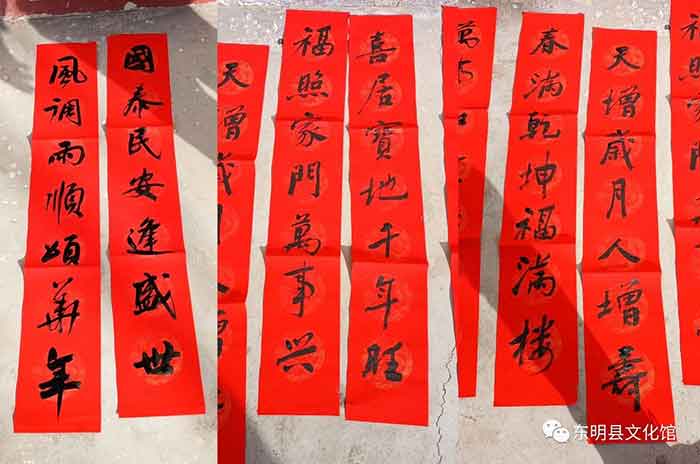 國泰民安逢盛世
風调雨順頌華年
喜居寶地千年旺
福照家門萬事兴
天增歲
天增歲月人增壽
春满乾坤福满楼
东明县文化馆